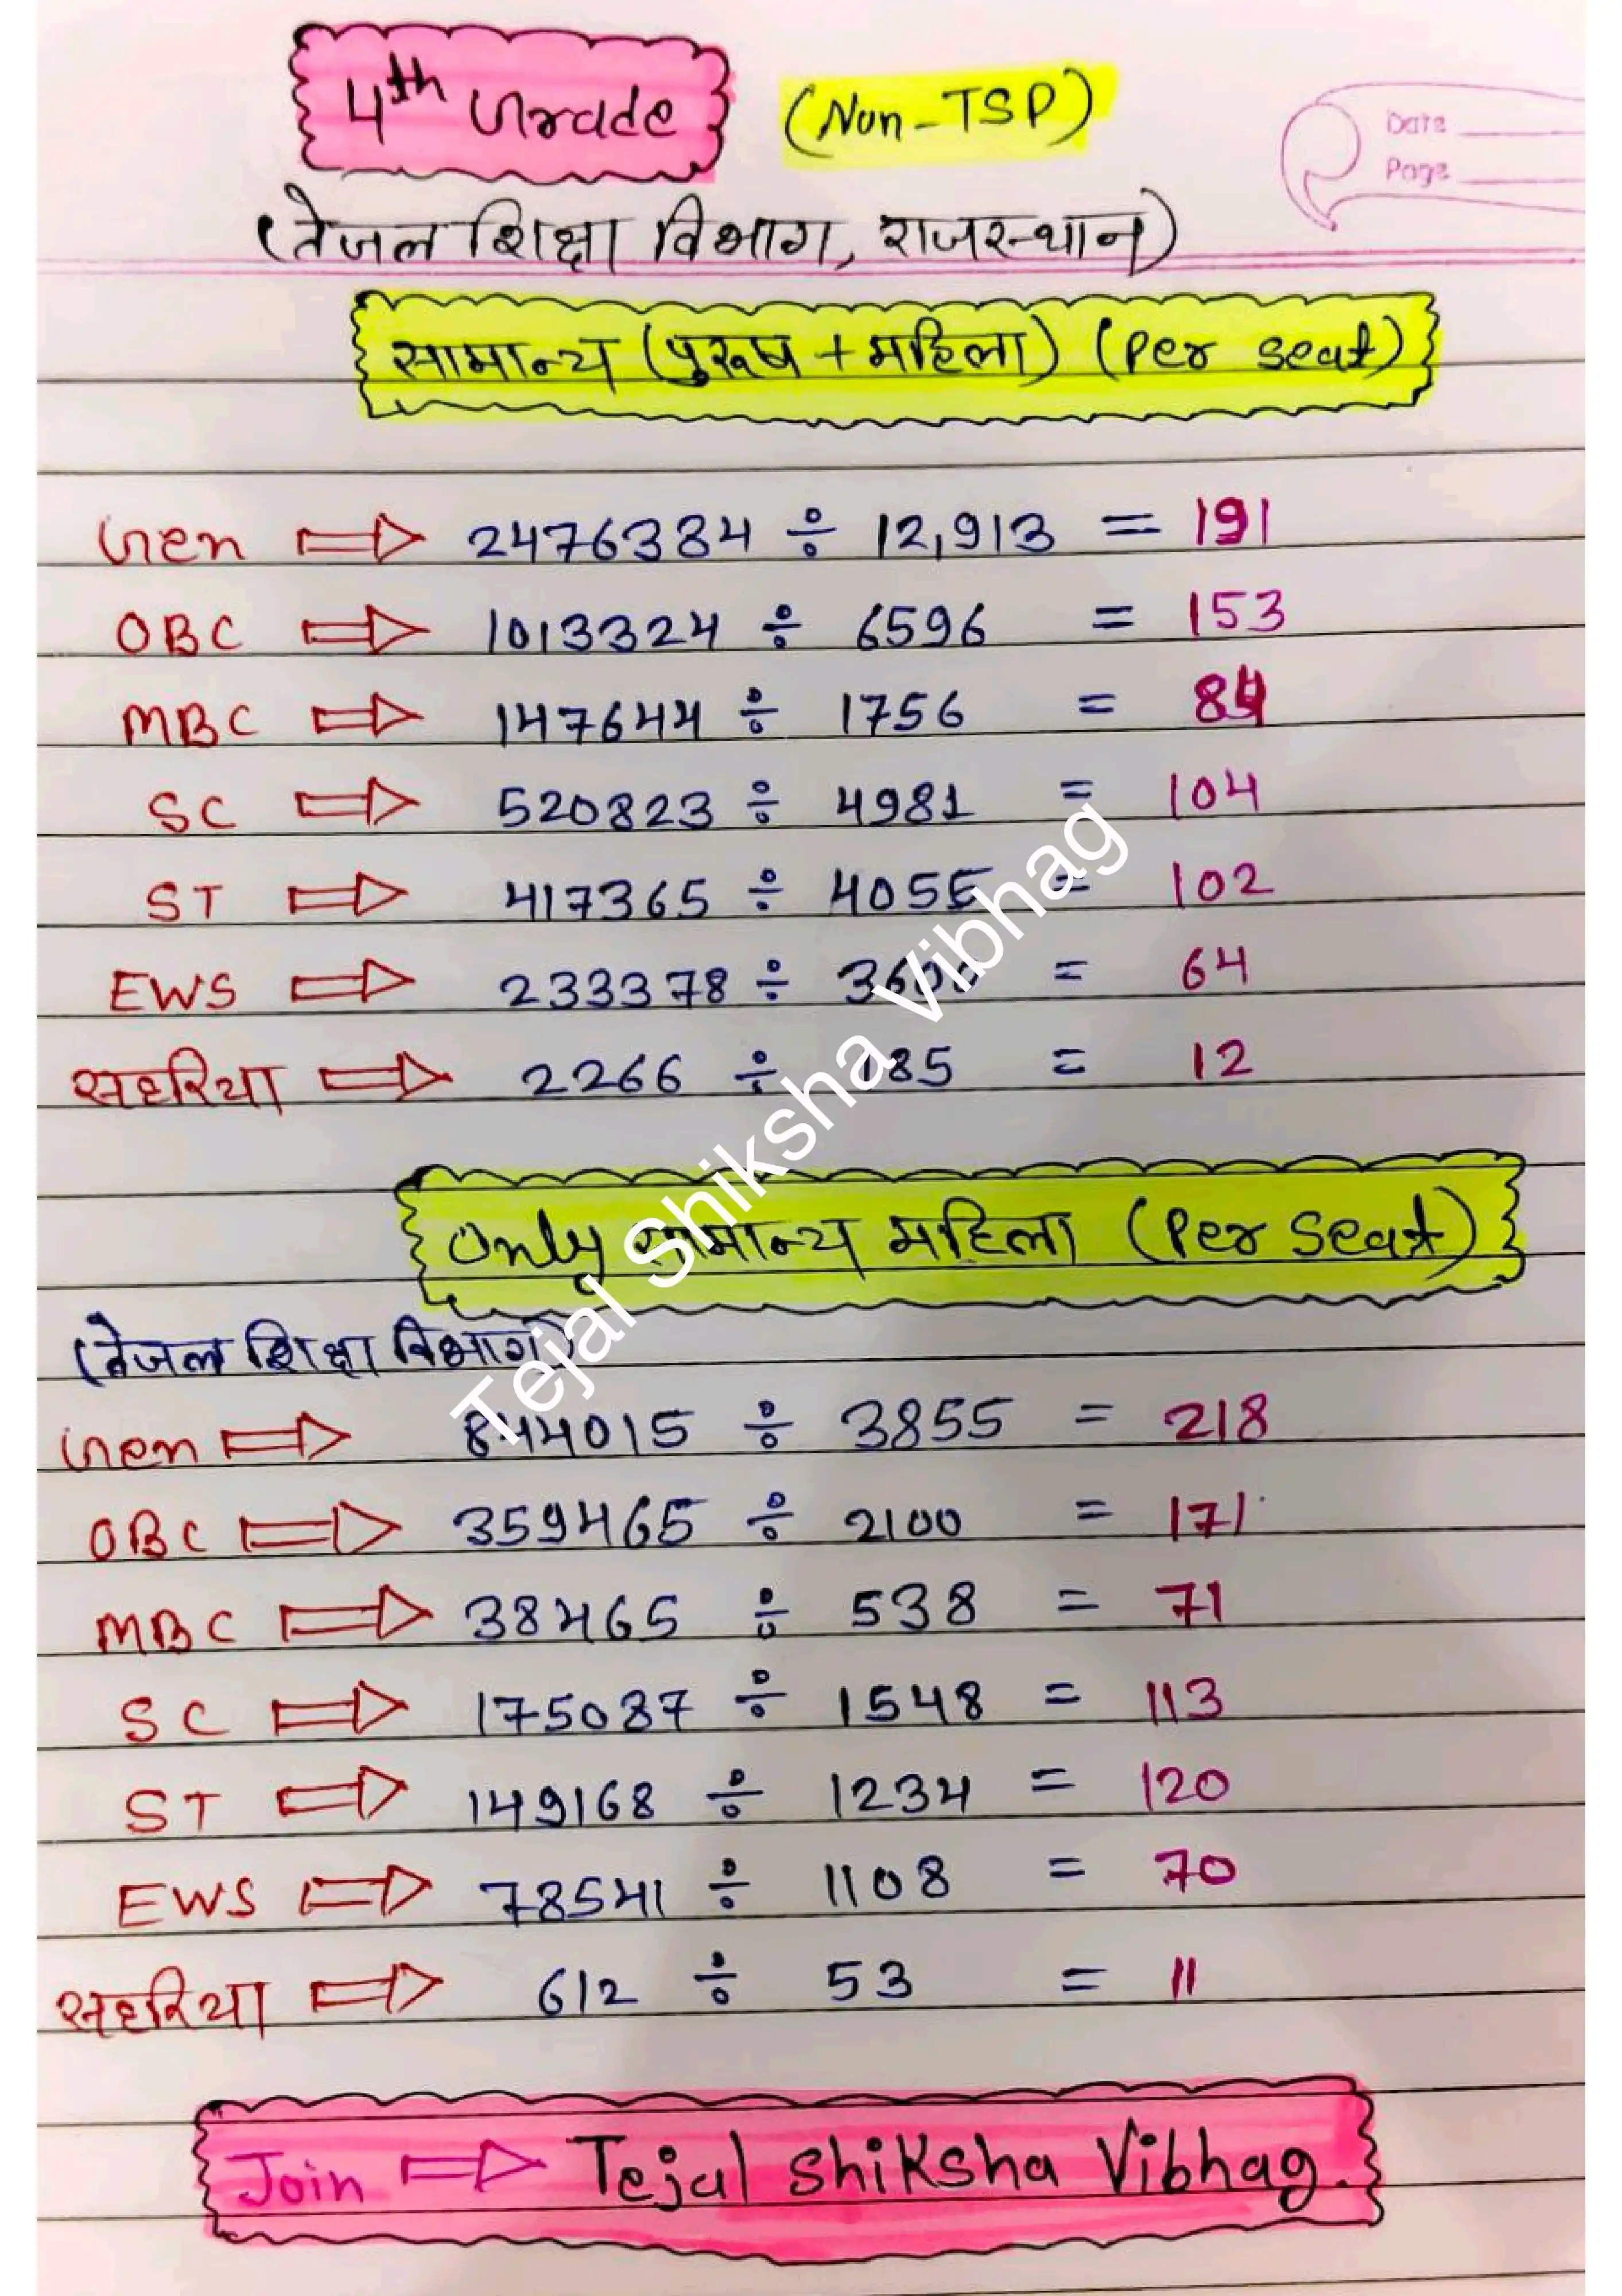 4th Grade (Non-TSP)
Date
Page
(तेजल शिक्षा विभाग, राजस्थान)
सामान्य (पुरूष + महिला) (Per seat)
Gen ⇒ 2476384 ÷ 12,913 = 191
OBC ⇒ 1013324 ÷ 6596 = 153
MBC ⇒ 147644 ÷ 1756 = 84
SC ⇒ 520823 ÷ 4981 = 104
ST ⇒ 417365 ÷ 4055 = 102
EWS ⇒ 233378 ÷ 3600 = 64
सहरिया ⇒ 2266 ÷ 185 = 12
Only सामान्य महिला (Per Seat)
(तेजल शिक्षा विभाग)
Gen ⇒ 844015 ÷ 3855 = 218
OBC ⇒ 359465 ÷ 2100 = 171
MBC ⇒ 38465 ÷ 538 = 71
SC ⇒ 175087 ÷ 1548 = 113
ST ⇒ 149168 ÷ 1234 = 120
EWS ⇒ 78541 ÷ 1108 = 70
सहरिया ⇒ 612 ÷ 53 = 11
Join ⇒ Tejal Shiksha Vibhag.
Tejal Shiksha Vibhag